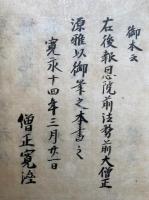 御本云
右後報恩院前法務前大僧正
源雅以御筆之本書之
寛永十四年三月廿一日
僧正寛済